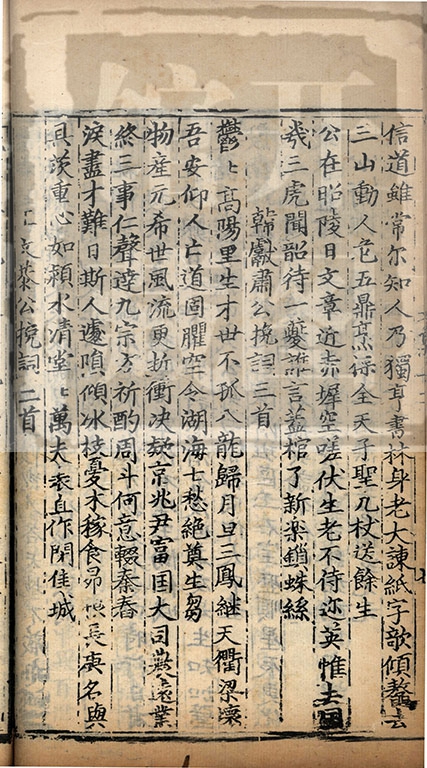 信道雖常尔知人乃獨亨書林身老大諫紙字歌傾鰲去
三山動人危五鼎烹深全天子聖几杖送餘生
公在昭陵日文章近赤墀空嗟伏生老不待迩英惟
羲三虎聞韶待一夔誰言蓋棺了新樂鎖蛛絲
韓獻肅公挽詞三首
鬱〻高陽里生才世不孤八龍歸月旦三鳳繼天衢梁壞
吾安仰人亡道固臞空令湖海士愁絶奠生芻
物產元希世風流更折衝决欬京兆尹富国大司農遠業
終三事仁聲達九宗方祈酌周斗何意輟秦舂
淚盡才難日斯人遽嗔傾冰枝憂木稼食昴長庚名與
具茨重心如潁水清堂〻萬夫表直作閉佳城
王文恭公挽詞二首